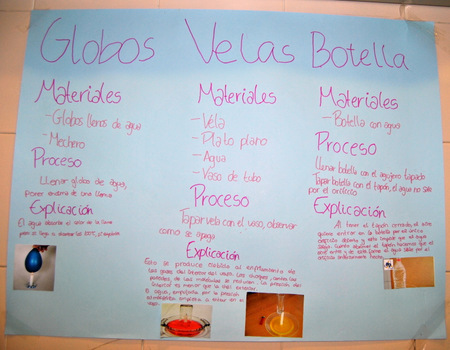 Globos
Materiales
- Globos llenos de agua
- Mechero
Proceso
Llenar globo de agua,
poner encima de una llama
Explicación
El agua absorbe el calor de la llama
Velas
Materiales
- Vela
- Plato plano
- Agua
- Vaso de tubo
Proceso
Tapar vela con el vaso, observar
como se apaga
Explicación
Esto se produce debido al enfriamiento de
los gases del interior del vaso. Los choques, contra las
paredes, de las moléculas se reducen. La presión del
interior es menor que la del exterior.
El agua, empujada por la presión
atmosférica empieza a entrar en el
vaso.
Botella
Materiales
- Botella con agua
Proceso
Llenar botella con el agujero tapado
Tapar botella con el tapón, el agua no sale
por el orificio
Explicación
Al tener el tapón cerrado, el aire
quiere entrar en la botella por el único
orificio abierto y esto impide que el agua